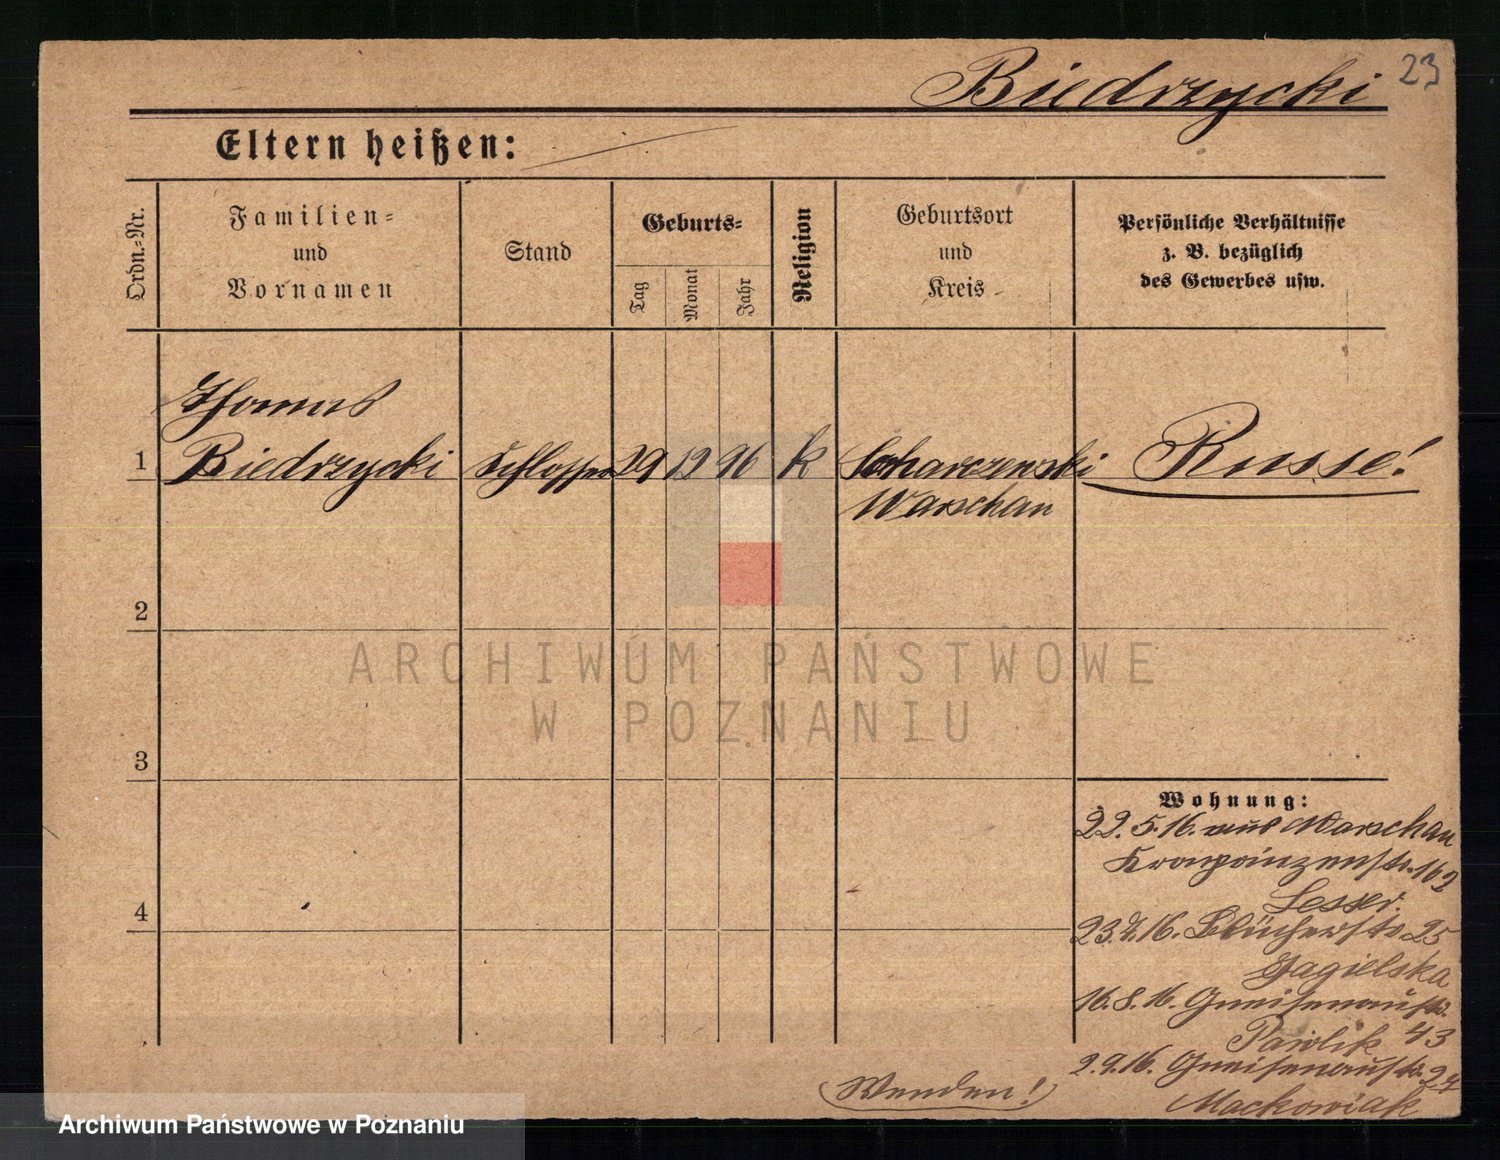 Biedrzycki 23
Eltern heißen:
Ordn.-Nr.
Familien-
und
Vornamen
Stand
Geburts-
Tag
Monat
Jahr
Religion
Geburtsort
und
Kreis
Persönliche Verhältnisse
z. B. bezüglich
des Gewerbes usw.
Thomas
1 Biedrzycki Schlosser 29 12 96 K Russe!
Warschau
2
ARCHIWUM PAŃSTWOWE
W POZNANIU
3
Wohnung:
22.5.16. aus Warschau
Kronprinzenstr. 102
Lesser.
4
23.7.16. Blücherstr. 25
Jagielska
16.8.16. Gneisenaustr.
Pawlik 43
2.9.16. Gneisenaustr. 27
Mackowiak
(Wenden!)
Archiwum Państwowe w Poznaniu